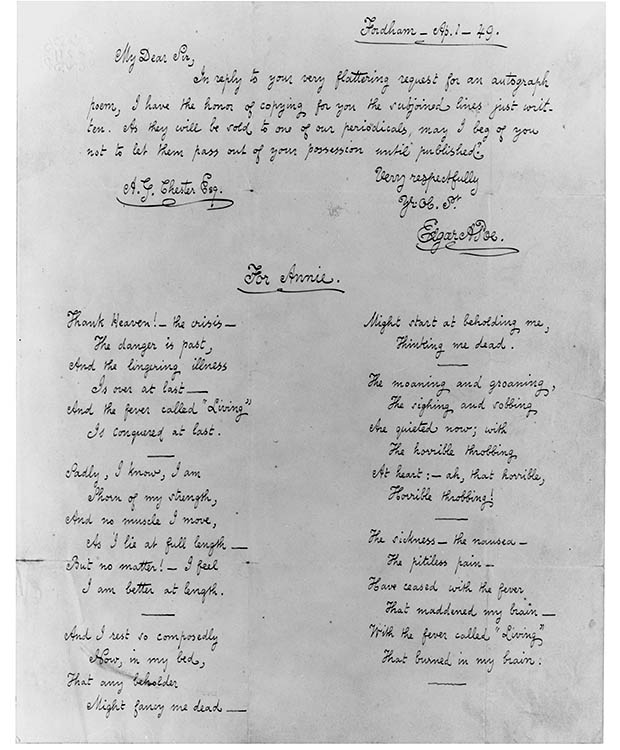 Fordham – Ap. 1 – 49.
My Dear Sir,
In reply to your very flattering request for an autograph
poem, I have the honor of copying for you the subjoined lines just writ-
ten. As they will be sold to one of our periodicals, may I beg of you
not to let them pass out of your possession until published?
Very respectfully
Yr. Ob. St
A. G. Chester Esq.
Edgar A Poe.
For Annie.
Thank Heaven! – the crisis –
The danger is past,
And the lingering illness
Is over at last —
And the fever called "Living"
Is conquered at last.
Sadly, I know, I am
Shorn of my strength,
And no muscle I move,
As I lie at full length —
But no matter! – I feel
I am better at length.
And I rest so composedly
Now, in my bed,
That any beholder
Might fancy me dead —
Might start at beholding me,
Thinking me dead.
The moaning and groaning,
The sighing and sobbing
Are quieted now; with
The horrible throbbing
At heart: – ah, that horrible,
Horrible throbbing!
The sickness – the nausea –
The pitiless pain –
Have ceased with the fever
That maddened my brain —
With the fever called "Living"
That burned in my brain.